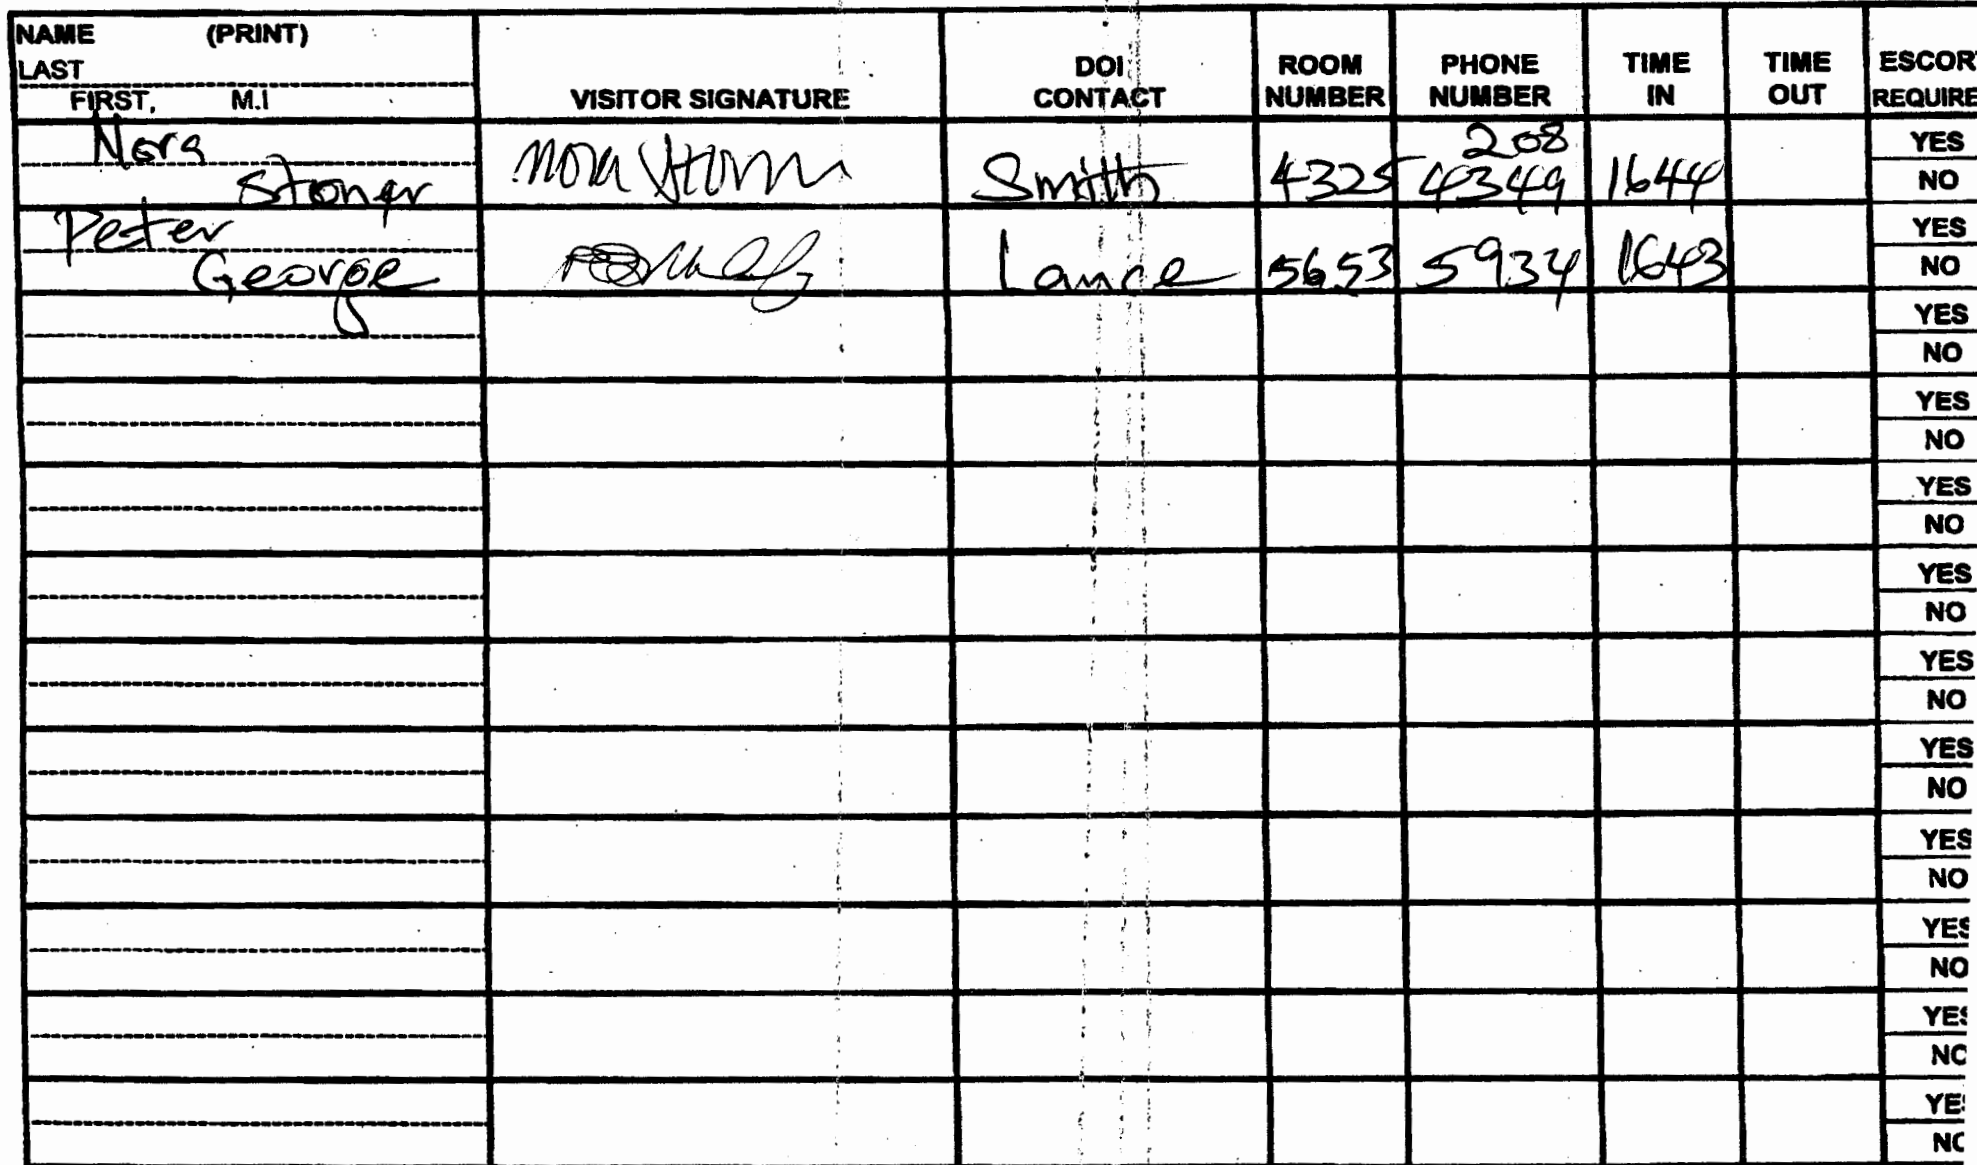 NAME (PRINT)
LAST
FIRST, M.I
VISITOR SIGNATURE
DOI
CONTACT
ROOM
NUMBER
PHONE
NUMBER
TIME
IN
TIME
OUT
ESCOR
REQUIRE
Nora
Stoner
Smith
4325
208
4349
1644
YES
NO
Peter
George
Lance
5653
5934
1643
YES
NO
YES
NO
YES
NO
YES
NO
YES
NO
YES
NO
YES
NO
YES
NO
YES
NO
YES
NO
YES
NO